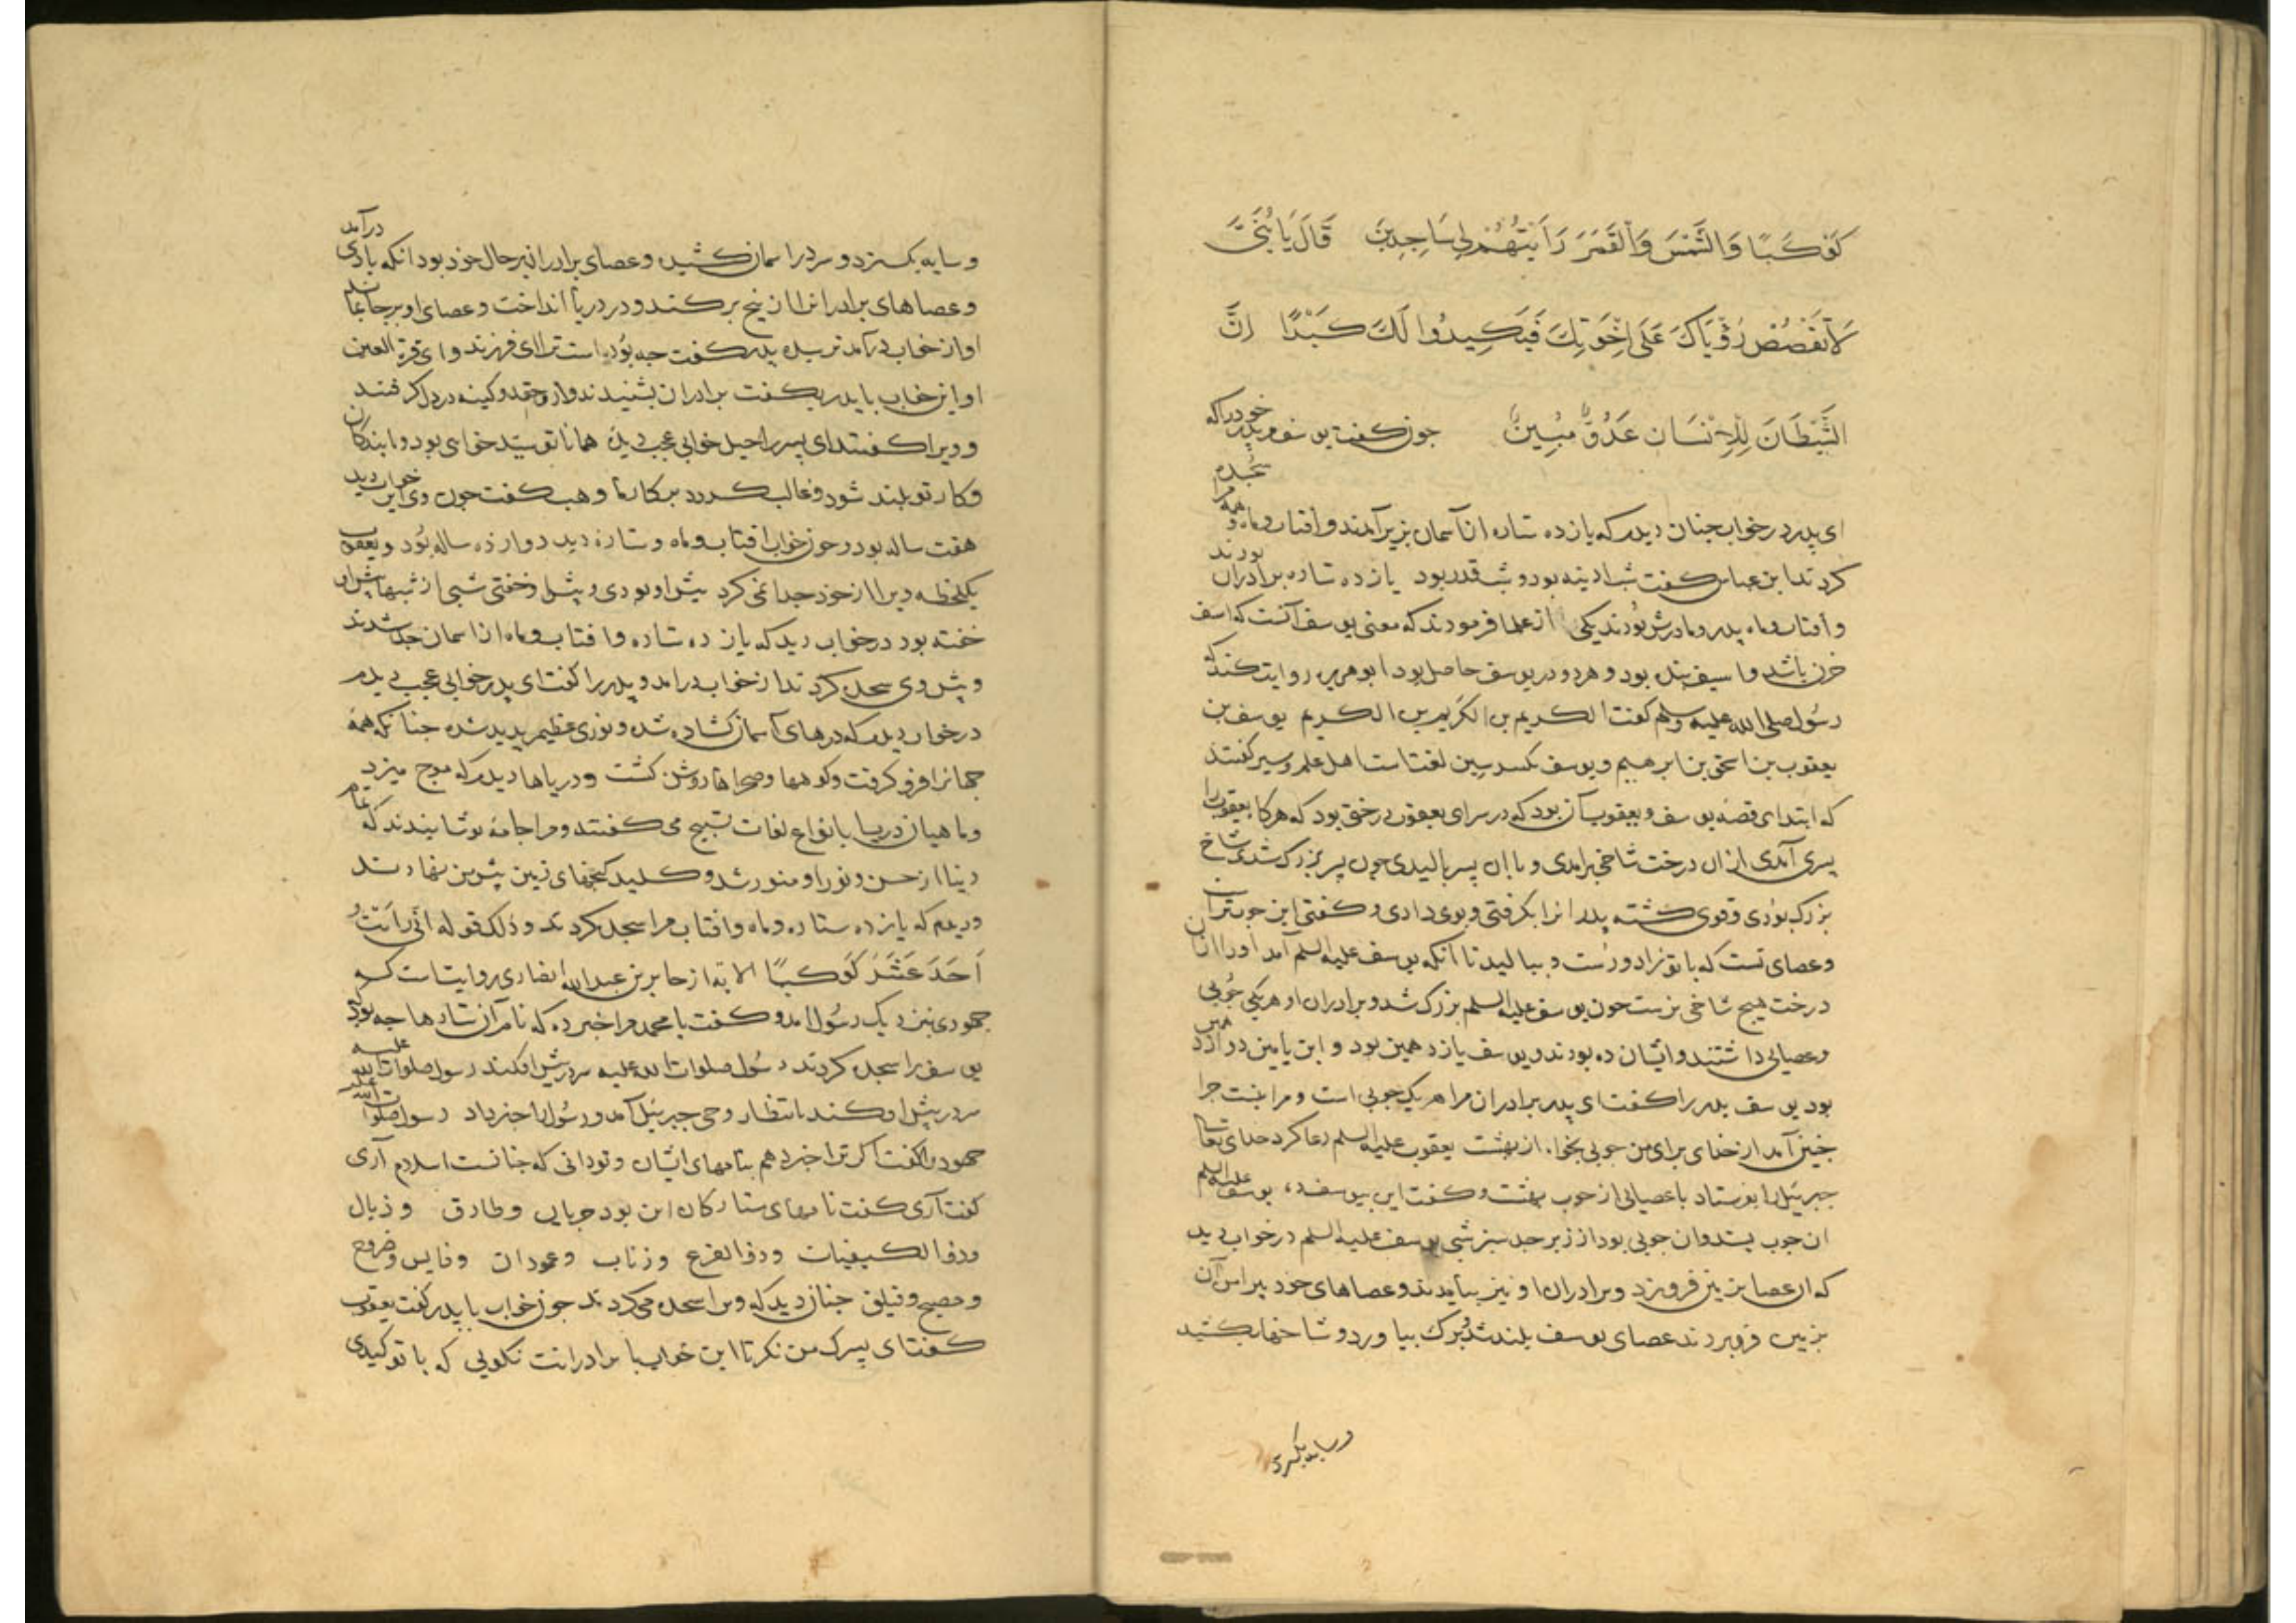 كَوْكَبًا وَالشَّمْسَ وَالْقَمَرَ رَاَيْتُهُمْ لِي سَاجِدِينَ قَالَ يَا بُنَيَّ
لَا تَقْصُصْ رُؤْيَاكَ عَلَى اِخْوَتِكَ فَيَكِيدُوا لَكَ كَيْدًا اِنَّ
الشَّيْطَانَ لِلْاِنْسَانِ عَدُوٌّ مُبِينٌ جون كفت يوسف مر پدر خودرا كه
ای پدر در خواب جنان ديدم كه يازده ستاره از آسمان بزير آمدند و افتاب و ماه و همه مرا سجده
كردند ابن عباس كفت شب ادينه بود و شب قدر بود يازده ستاره برادران بودند
و افتاب و ماه پدر و مادرش بودند يكی از علما فرمودند كه معنی يوسف آنست كه اسف
حزن باشد و اسيف بنده بود و هر دو در يوسف حاصل بود ابو هريره روايت كند كه
رسول صلی الله عليه وسلم كفت الكريم بن الكريم بن الكريم يوسف بن
يعقوب بن اسحق بن ابرهيم و يوسف بكسر سين لغتست اهل علم و سير كفتند
كه ابتدای قصه يوسف و يعقوب آن بود كه در سرای يعقوب درختی بود كه هركا يعقوب را
پسری آمدی از ان درخت شاخی برامدی و با ان پسر باليدی چون پسر بزرك شدی شاخ
بزرك بودی و قوی كشته پدر انرا بكرفتی و بوی دادی و كفتی اين جوب تراست
و عصای تست كه با تو زاد و رست و بباليد تا آنكه يوسف عليه السلم آمد اورا از ان
درخت هيج شاخی نرست جون يوسف عليه السلم بزرك شد و برادران او هر يكی جوبی
و عصايی داشتند و ايشان ده بودند و يوسف يازدهمين بود و ابن يامين دوازدهمين
بود يوسف پدر را كفت ای پدر برادران مرا هر يك جوبی است و مرا نيست جرا
جنين آمد از خدای برای من جوبی بخواه از بهشت يعقوب عليه السلم دعا كرد خدای تعالی
جبرئيل را بفرستاد با عصايی از جوب بهشت و كفت اين بيوسف ده يوسف عليه السلم
ان جوب بستد و ان جوبی بود از زبرجد سبز شبی يوسف عليه السلم در خواب ديد
كه ان عصا بزمين فرو بزد و برادران او نيز بيامدند و عصاهای خود پيرامن آن
بزمين فرو بردند عصای يوسف بلند شد و برك بياورد و شاخها بكشيد
و سايه بكسترد
و سايه بكسترد و سر در اسمان كشيد و عصای برادران بر حال خود بود انكه بادی درآمد
و عصاهای برادرانرا از بيخ بركند و در دريا انداخت و عصای او بر جا بماند
او از خواب درآمد ترسيده پدر كفت جه بوده است ترا ای فرزند و ای قرة العين
او اين خواب با پدر بكفت برادران بشنيدند و از و حقد و كينه در دل كرفتند
و ويرا كفتند ای پسر راحيل خوابی عجب ديده همانا تو سيد خواهی بود و ما بندكان
و كار تو بلند شود و غالب كردد بر كار ما وهب كفت جون وی اين خواب ديد
هفت ساله بود و جون خواب افتاب و ماه و ستاره ديد دوازده ساله بود و يعقوب
يكلحظه ويرا از خود جدا نمی كرد پيش او بودی و پيش او خفتی شبی از شبها پيش او
خفته بود در خواب ديد كه يازده ستاره و افتاب و ماه از اسمان جدا شدند
و پيش وی سجده كردند از خواب درامد و پدر را كفت ای پدر خوابی عجب ديدم
در خواب ديدم كه درهای آسمان كشاده شد و نوری عظيم پديد شد جنانكه همه
جهانرا فرو كرفت و كوهها و صحراها روشن كشت و درياها ديدم كه موج ميزد
و ماهيان دريا بانواع لغات تسبيح می كفتند و مرا جامه پوشانيدند كه تمام
دنيا از حسن و نور او منور شد و كليد كنجهای زمين پيش من نهادند
و ديدم كه يازده ستاره و ماه و افتاب مرا سجده كردند و ذلك قوله انی رَاَيْتُ
اَحَدَ عَشَرَ كَوْكَبًا الاية از جابر بن عبدالله انصاری روايتست كه
جهودی بنزديك رسول امد و كفت يا محمد مرا خبر ده كه نام آن ستارها جه بود كه
يوسف را سجده كردند رسول صلوات الله عليه سر در پيش افكند رسول صلوات الله عليه
سر در پيش او كند بانتظار وحی جبرئيل آمد و رسول را خبر داد رسول صلوات الله عليه
جهود را كفت اكر ترا خبر دهم بنامهای ايشان و تو دانی كه جنانست اسلام آری
كفت آری كفت نامهای ستاركان اين بود جريان و طارق و ذيال
و ذوالكيفيات و ذوالفرع و زناب و عمودان و فابس و ضروح
و مصبح و فيلق جنان ديد كه ويرا سجده می كردند جون خواب با پدر كفت يعقوب
كفت ای پسرك من نكر تا اين خواب با برادرانت نكويی كه با تو كيدی